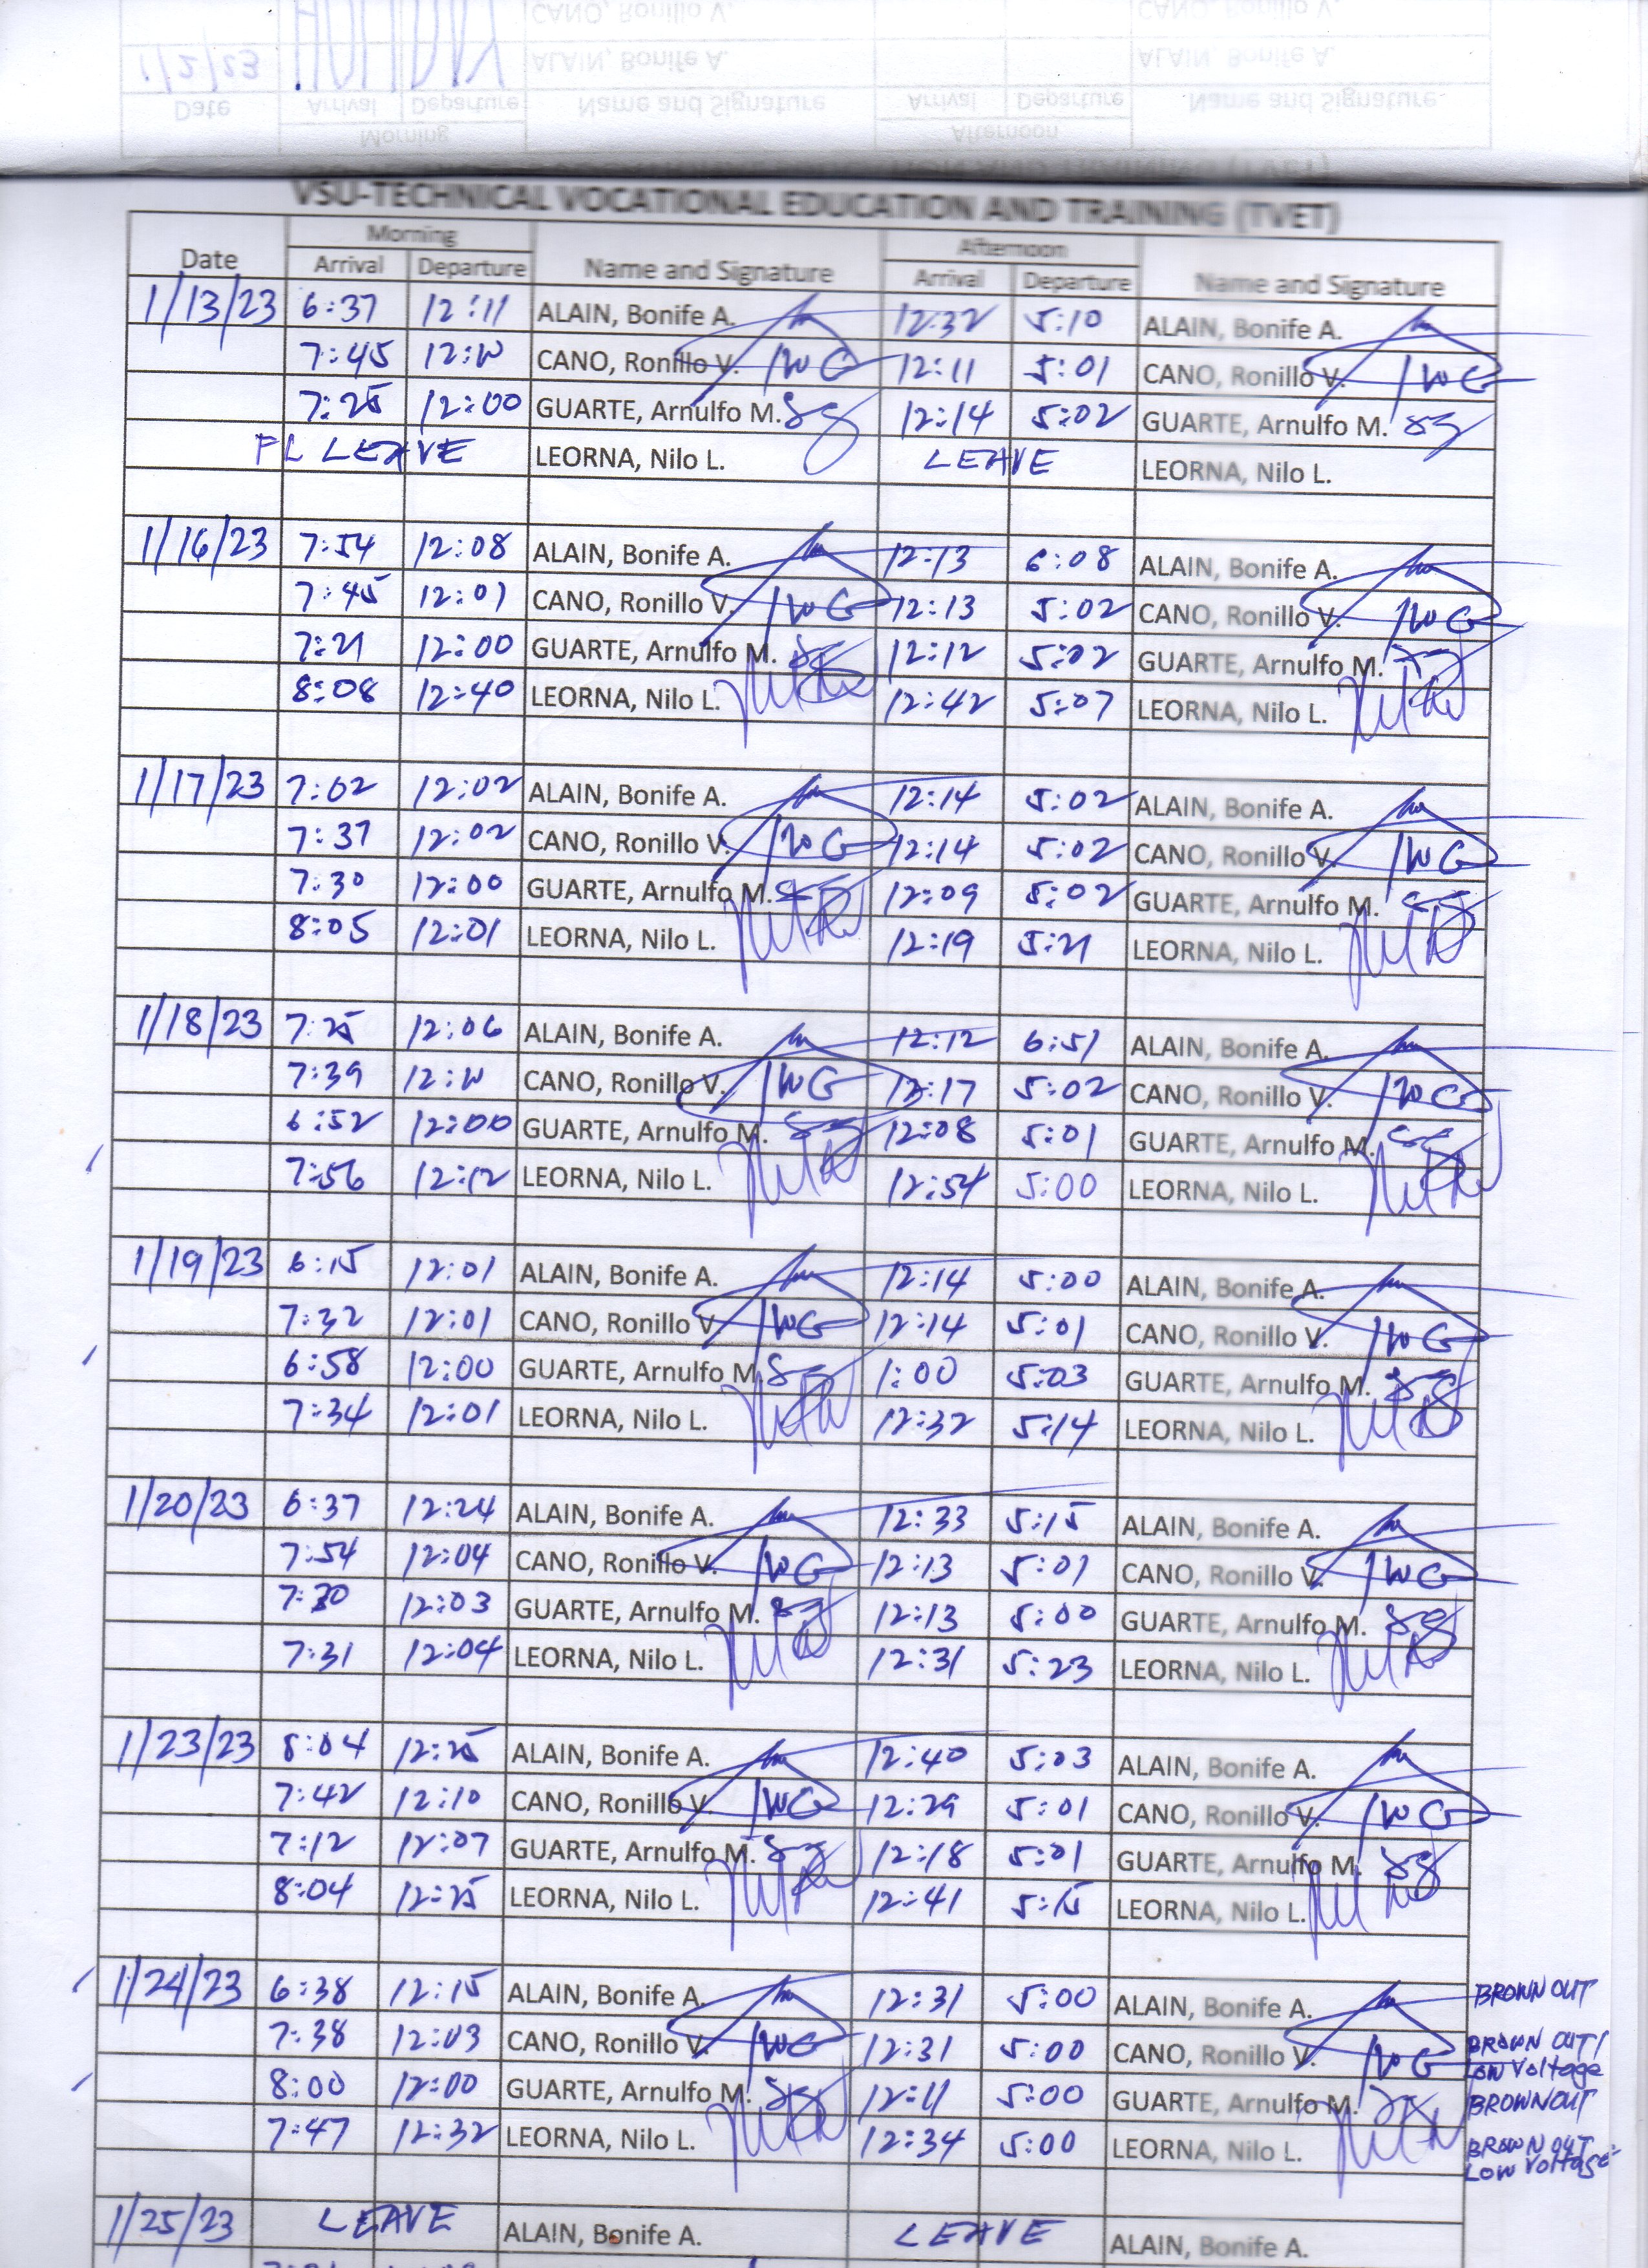 VSU-TECHNICAL VOCATIONAL EDUCATION AND TRAINING (TVET)
Morning Afternoon
Date Arrival Departure Name and Signature Arrival Departure Name and Signature
1/13/23 6:37 12:11 ALAIN, Bonife A. 12:32 5:10 ALAIN, Bonife A.
7:45 CANO, Ronillo V. 12:11 5:01 CANO, Ronillo V.
7:25 12:00 GUARTE, Arnulfo M. 12:14 5:02 GUARTE, Arnulfo M.
FL LEAVE LEORNA, Nilo L. LEAVE LEORNA, Nilo L.
1/16/23 7:54 12:08 ALAIN, Bonife A. 12:13 6:08 ALAIN, Bonife A.
7:45 12:01 CANO, Ronillo V. 12:13 5:02 CANO, Ronillo V.
7:21 12:00 GUARTE, Arnulfo M. 12:12 5:02 GUARTE, Arnulfo M.
8:08 12:40 LEORNA, Nilo L. 12:42 5:07 LEORNA, Nilo L.
1/17/23 7:02 12:02 ALAIN, Bonife A. 12:14 5:02 ALAIN, Bonife A.
7:37 12:02 CANO, Ronillo V. 12:14 5:02 CANO, Ronillo V.
7:30 12:00 GUARTE, Arnulfo M. 12:09 5:02 GUARTE, Arnulfo M.
8:05 12:01 LEORNA, Nilo L. 12:19 5:21 LEORNA, Nilo L.
1/18/23 7:25 12:06 ALAIN, Bonife A. 12:12 6:51 ALAIN, Bonife A.
7:39 CANO, Ronillo V. 12:17 5:02 CANO, Ronillo V.
6:52 12:00 GUARTE, Arnulfo M. 12:08 5:01 GUARTE, Arnulfo M.
7:56 12:12 LEORNA, Nilo L. 12:54 5:00 LEORNA, Nilo L.
1/19/23 6:15 12:01 ALAIN, Bonife A. 12:14 5:00 ALAIN, Bonife A.
7:32 12:01 CANO, Ronillo V. 12:14 5:01 CANO, Ronillo V.
6:58 12:00 GUARTE, Arnulfo M. 1:00 5:03 GUARTE, Arnulfo M.
7:34 12:01 LEORNA, Nilo L. 12:32 5:14 LEORNA, Nilo L.
1/20/23 6:37 12:24 ALAIN, Bonife A. 12:33 5:15 ALAIN, Bonife A.
7:54 12:04 CANO, Ronillo V. 12:13 5:01 CANO, Ronillo V.
12:03 GUARTE, Arnulfo M. 12:13 5:00 GUARTE, Arnulfo M.
7:31 12:04 LEORNA, Nilo L. 12:31 5:23 LEORNA, Nilo L.
1/23/23 8:04 12:25 ALAIN, Bonife A. 12:40 5:03 ALAIN, Bonife A.
7:42 12:10 CANO, Ronillo V. 12:29 5:01 CANO, Ronillo V.
7:12 12:07 GUARTE, Arnulfo M. 12:18 5:01 GUARTE, Arnulfo M.
8:04 12:25 LEORNA, Nilo L. 12:41 5:15 LEORNA, Nilo L.
1/24/23 6:38 12:15 ALAIN, Bonife A. 12:31 5:00 ALAIN, Bonife A. BROWN OUT
7:38 12:03 CANO, Ronillo V. 12:31 5:00 CANO, Ronillo V. BROWN OUT/
Low Voltage
8:00 12:00 GUARTE, Arnulfo M. 12:11 5:00 GUARTE, Arnulfo M. BROWNOUT
7:47 12:32 LEORNA, Nilo L. 12:34 5:00 LEORNA, Nilo L. BROWN OUT
Low Voltage
1/25/23 LEAVE ALAIN, Bonife A. LEAVE ALAIN, Bonife A.